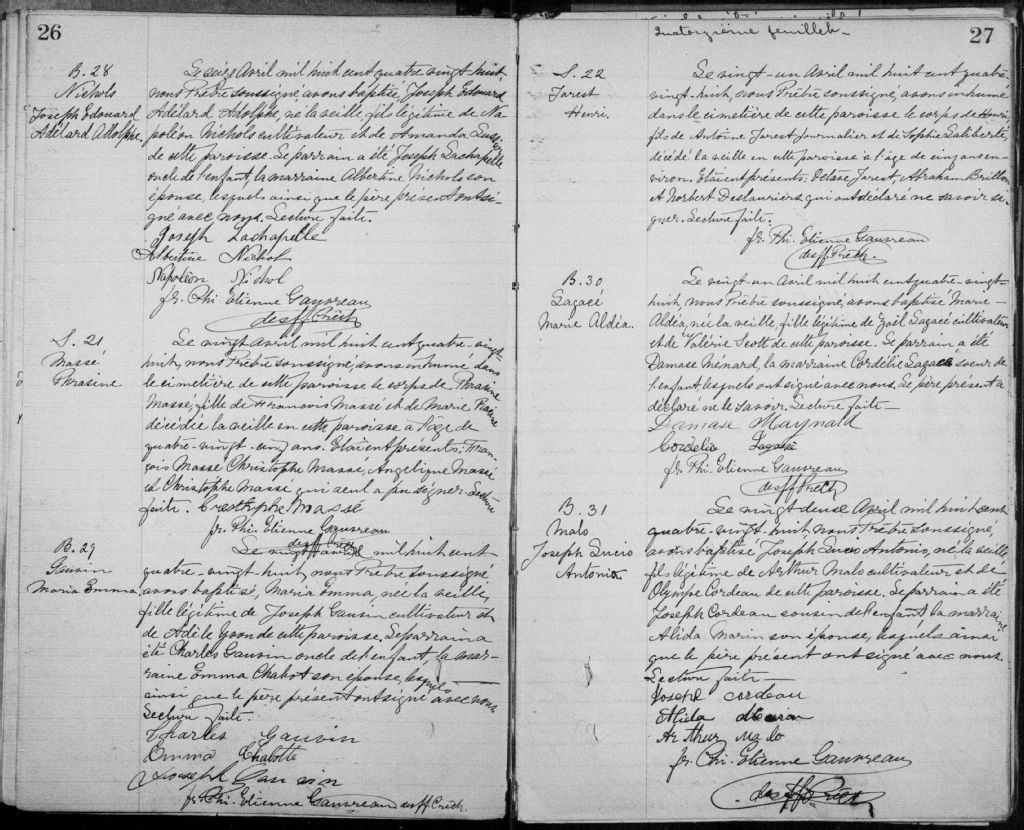 26
B. 28
Nichols
Joseph Edouard
Adélard Adolphe.
Le seize Avril mil huit cent quatre vingt-huit,
nous Prêtre soussigné, avons baptisé Joseph Edouard
Adélard Adolphe, né la veille, fils légitime de Na-
poléon Nichols cultivateur et de Amanda
de cette paroisse. Le parrain a été Joseph Lachapelle
oncle de l'enfant, la marraine Albertine Nichols son
épouse, lesquels ainsi que le père présent ont si-
gné avec nous. Lecture faite.
Joseph Lachapelle
Albertine Nichol
Napoléon Nichol
fr. Phi. Etienne Gauvreau
des ff. Prêch.
S. 21
Massé
Phrasine
Le vingt Avril mil huit cent quatre-vingt-
huit, nous Prêtre soussigné, avons inhumé dans
le cimetière de cette paroisse le corps de Phrasine
Massé, fille de François Massé et de Marie
décédée la veille en cette paroisse à l'âge de
quatre-vingt-un ans. Etaient présents: Fran-
çois Massé Christophe Massé, Angélique Massé
et Christophe Massé qui seul a pu signer. Lecture
faite. Crestophe Masse
fr. Phi. Etienne Gauvreau
des ff. Prêch.
B. 29
Gauvin
Maria Emma
Le vingt mil huit cent
quatre-vingt-huit, nous Prêtre soussigné,
avons baptisé, Maria Emma, née la veille,
fille légitime de Joseph Gauvin cultivateur et
de Adèle Yvon de cette paroisse. Le parrain a
été Charles Gauvin oncle de l'enfant, la mar-
raine Emma Chabot son épouse, lesquels
ainsi que le père présent ont signé avec nous.
Lecture faite.
Charles Gauvin
Emma Chabotte
Joseph Gauvin
fr. Phi. Etienne Gauvreau des ff. Prêch.
Quatorzième feuillet-
27
S. 22
Jarest
Henri.
Le vingt-un Avril mil huit cent quatre-
vingt-huit, nous Prêtre soussigné, avons inhumé
dans le cimetière de cette paroisse le corps de Henri,
fils de Antoine Jarest journalier et de Sophie Laliberté,
décédé la veille en cette paroisse à l'âge de cinq ans en-
viron. Etaient présents. Octave Jarest, Abraham Brillon
et Norbert Deslauriers qui ont déclaré ne savoir si-
gner. Lecture faite.
fr. Phi. Etienne Gauvreau
des ff. Prêch.
B. 30
Lagacé
Marie Aldéa.
Le vingt-un Avril mil huit cent quatre-vingt-
huit, nous Prêtre soussigné, avons baptisé Marie-
Aldéa, née la veille, fille légitime de Joël Lagacé cultivateur
et de Valérie Scott de cette paroisse. Le parrain a été
Damase Ménard, la marraine Cordélie Lagacé soeur de
l'enfant, lesquels ont signé avec nous. Le père présent a
déclaré ne le savoir. Lecture faite-
Damase Maynald
Cordélia Lagassé
fr. Phi. Etienne Gauvreau
des ff. Prêch.
B. 31
Malo
Joseph Lucio
Antonio
Le vingt deux Avril mil huit cent
quatre-vingt-huit, nous Prêtre soussigné,
avons baptisé Joseph Lucio Antonio, né la veille
fils légitime de Arthur Malo cultivateur et de
Olympe Cordeau de cette paroisse. Le parrain a été
Joseph Cordeau cousin de l'enfant la marraine
Alida Marin son épouse, lesquels ainsi
que le père présent ont signé avec nous.
Lecture faite-
Joseph Cordeau
Alida
Arthur Malo
fr. Phi. Etienne Gauvreau
des ff. Prêch.